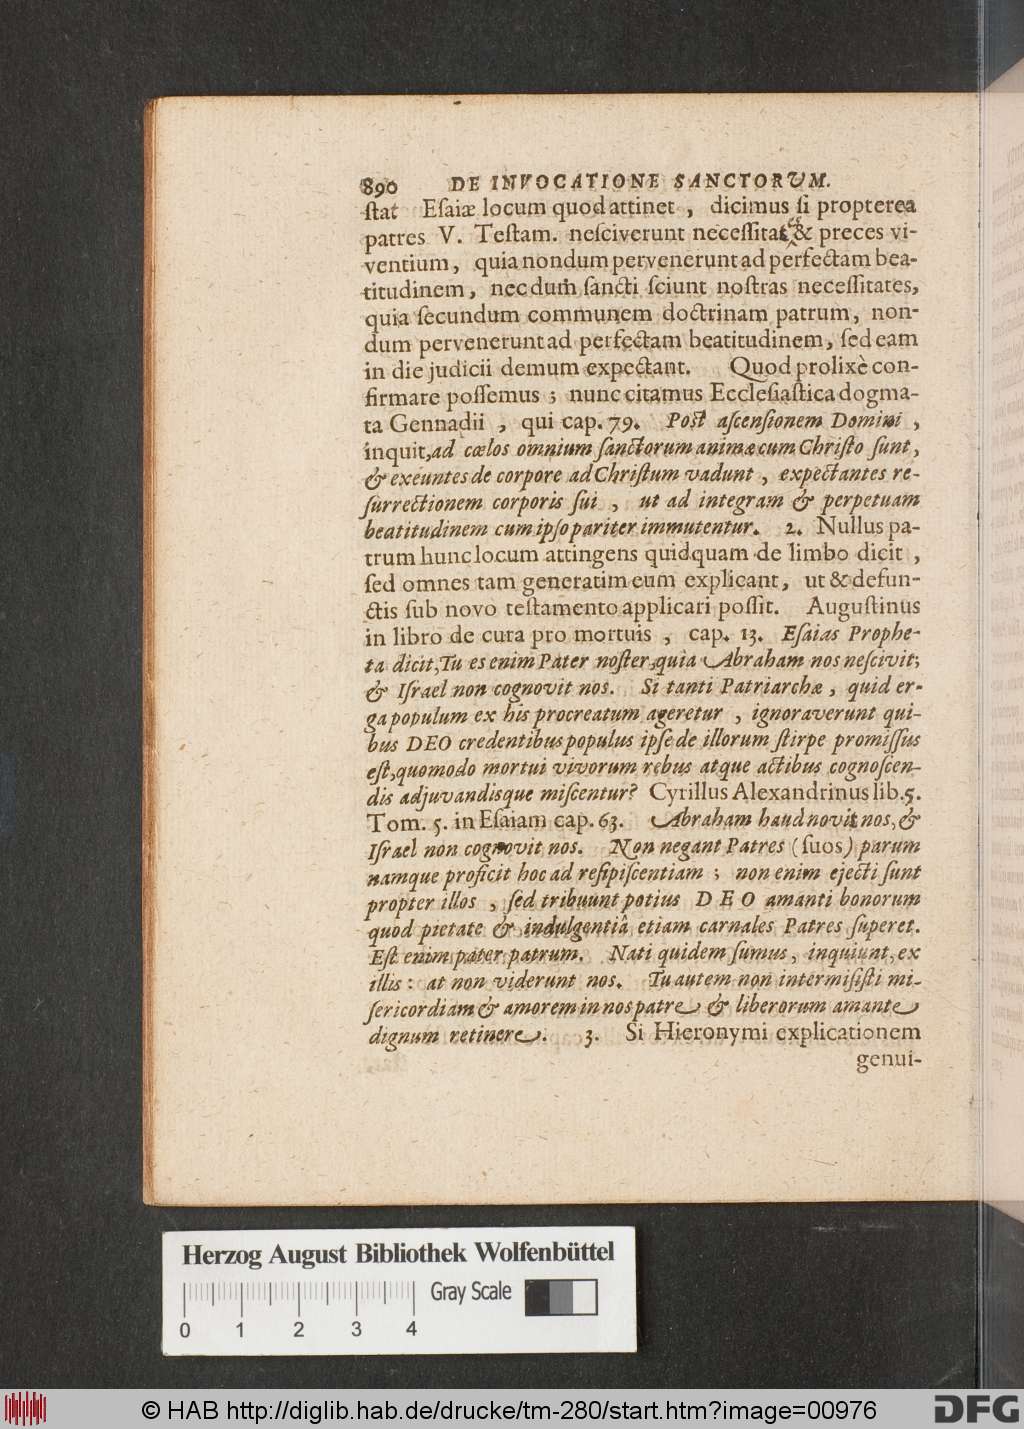 890 DE INVOCATIONE SANCTORVM.
ſtat Eſaiæ locum quod attinet, dicimus ſi propterea
patres V. Teſtam. neſciverunt neceſſitates & preces vi-
ventium, quia nondum pervenerunt ad perfectam bea-
titudinem, nec dum ſancti ſciunt noſtras neceſſitates,
quia ſecundum communem doctrinam patrum, non-
dum pervenerunt ad perfectam beatitudinem, ſed eam
in die judicii demum expectant. Quod prolixè con-
firmare poſſemus; nunc citamus Eccleſiaſtica dogma-
ta Gennadii, qui cap. 79. Poſt aſcenſionem Domini,
inquit, ad cœlos omnium ſanctorum animæ cum Chriſto ſunt,
& exeuntes de corpore ad Chriſtum vadunt, expectantes re-
ſurrectionem corporis ſui, ut ad integram & perpetuam
beatitudinem cum ipſo pariter immutentur. 2. Nullus pa-
trum hunc locum attingens quidquam de limbo dicit,
ſed omnes tam generatim eum explicant, ut & defun-
ctis ſub novo teſtamento applicari poſſit. Auguſtinus
in libro de cura pro mortuis, cap. 13. Eſaias Prophe-
ta dicit, Tu es enim Pater noſter, quia Abraham nos neſcivit;
& Iſrael non cognovit nos. Si tanti Patriarchæ, quid er-
ga populum ex his procreatum ageretur, ignoraverunt qui-
bus DEO credentibus populus ipſe de illorum ſtirpe promiſſus
eſt, quomodo mortui vivorum rebus atque actibus cognoſcen-
dis adjuvandisque miſcentur? Cyrillus Alexandrinus lib. 5.
Tom. 5. in Eſaiam cap. 63. Abraham haud novit nos, &
Iſrael non cognovit nos. Non negant Patres (ſuos) parum
namque proficit hoc ad reſipiſcentiam; non enim ejecti ſunt
propter illos, ſed tribuunt potius DEO amanti bonorum
quod pietate & indulgentiâ etiam carnales Patres ſuperet.
Eſt enim pater patrum. Nati quidem ſumus, inquiunt, ex
illis: at non viderunt nos. Tu autem non intermiſiſti mi-
ſericordiam & amorem in nos patre & liberorum amante
dignum retinere. 3. Si Hieronymi explicationem
genui-
Herzog August Bibliothek Wolfenbüttel
Gray Scale
0 1 2 3 4
© HAB http://diglib.hab.de/drucke/tm-280/start.htm?image=00976
DFG